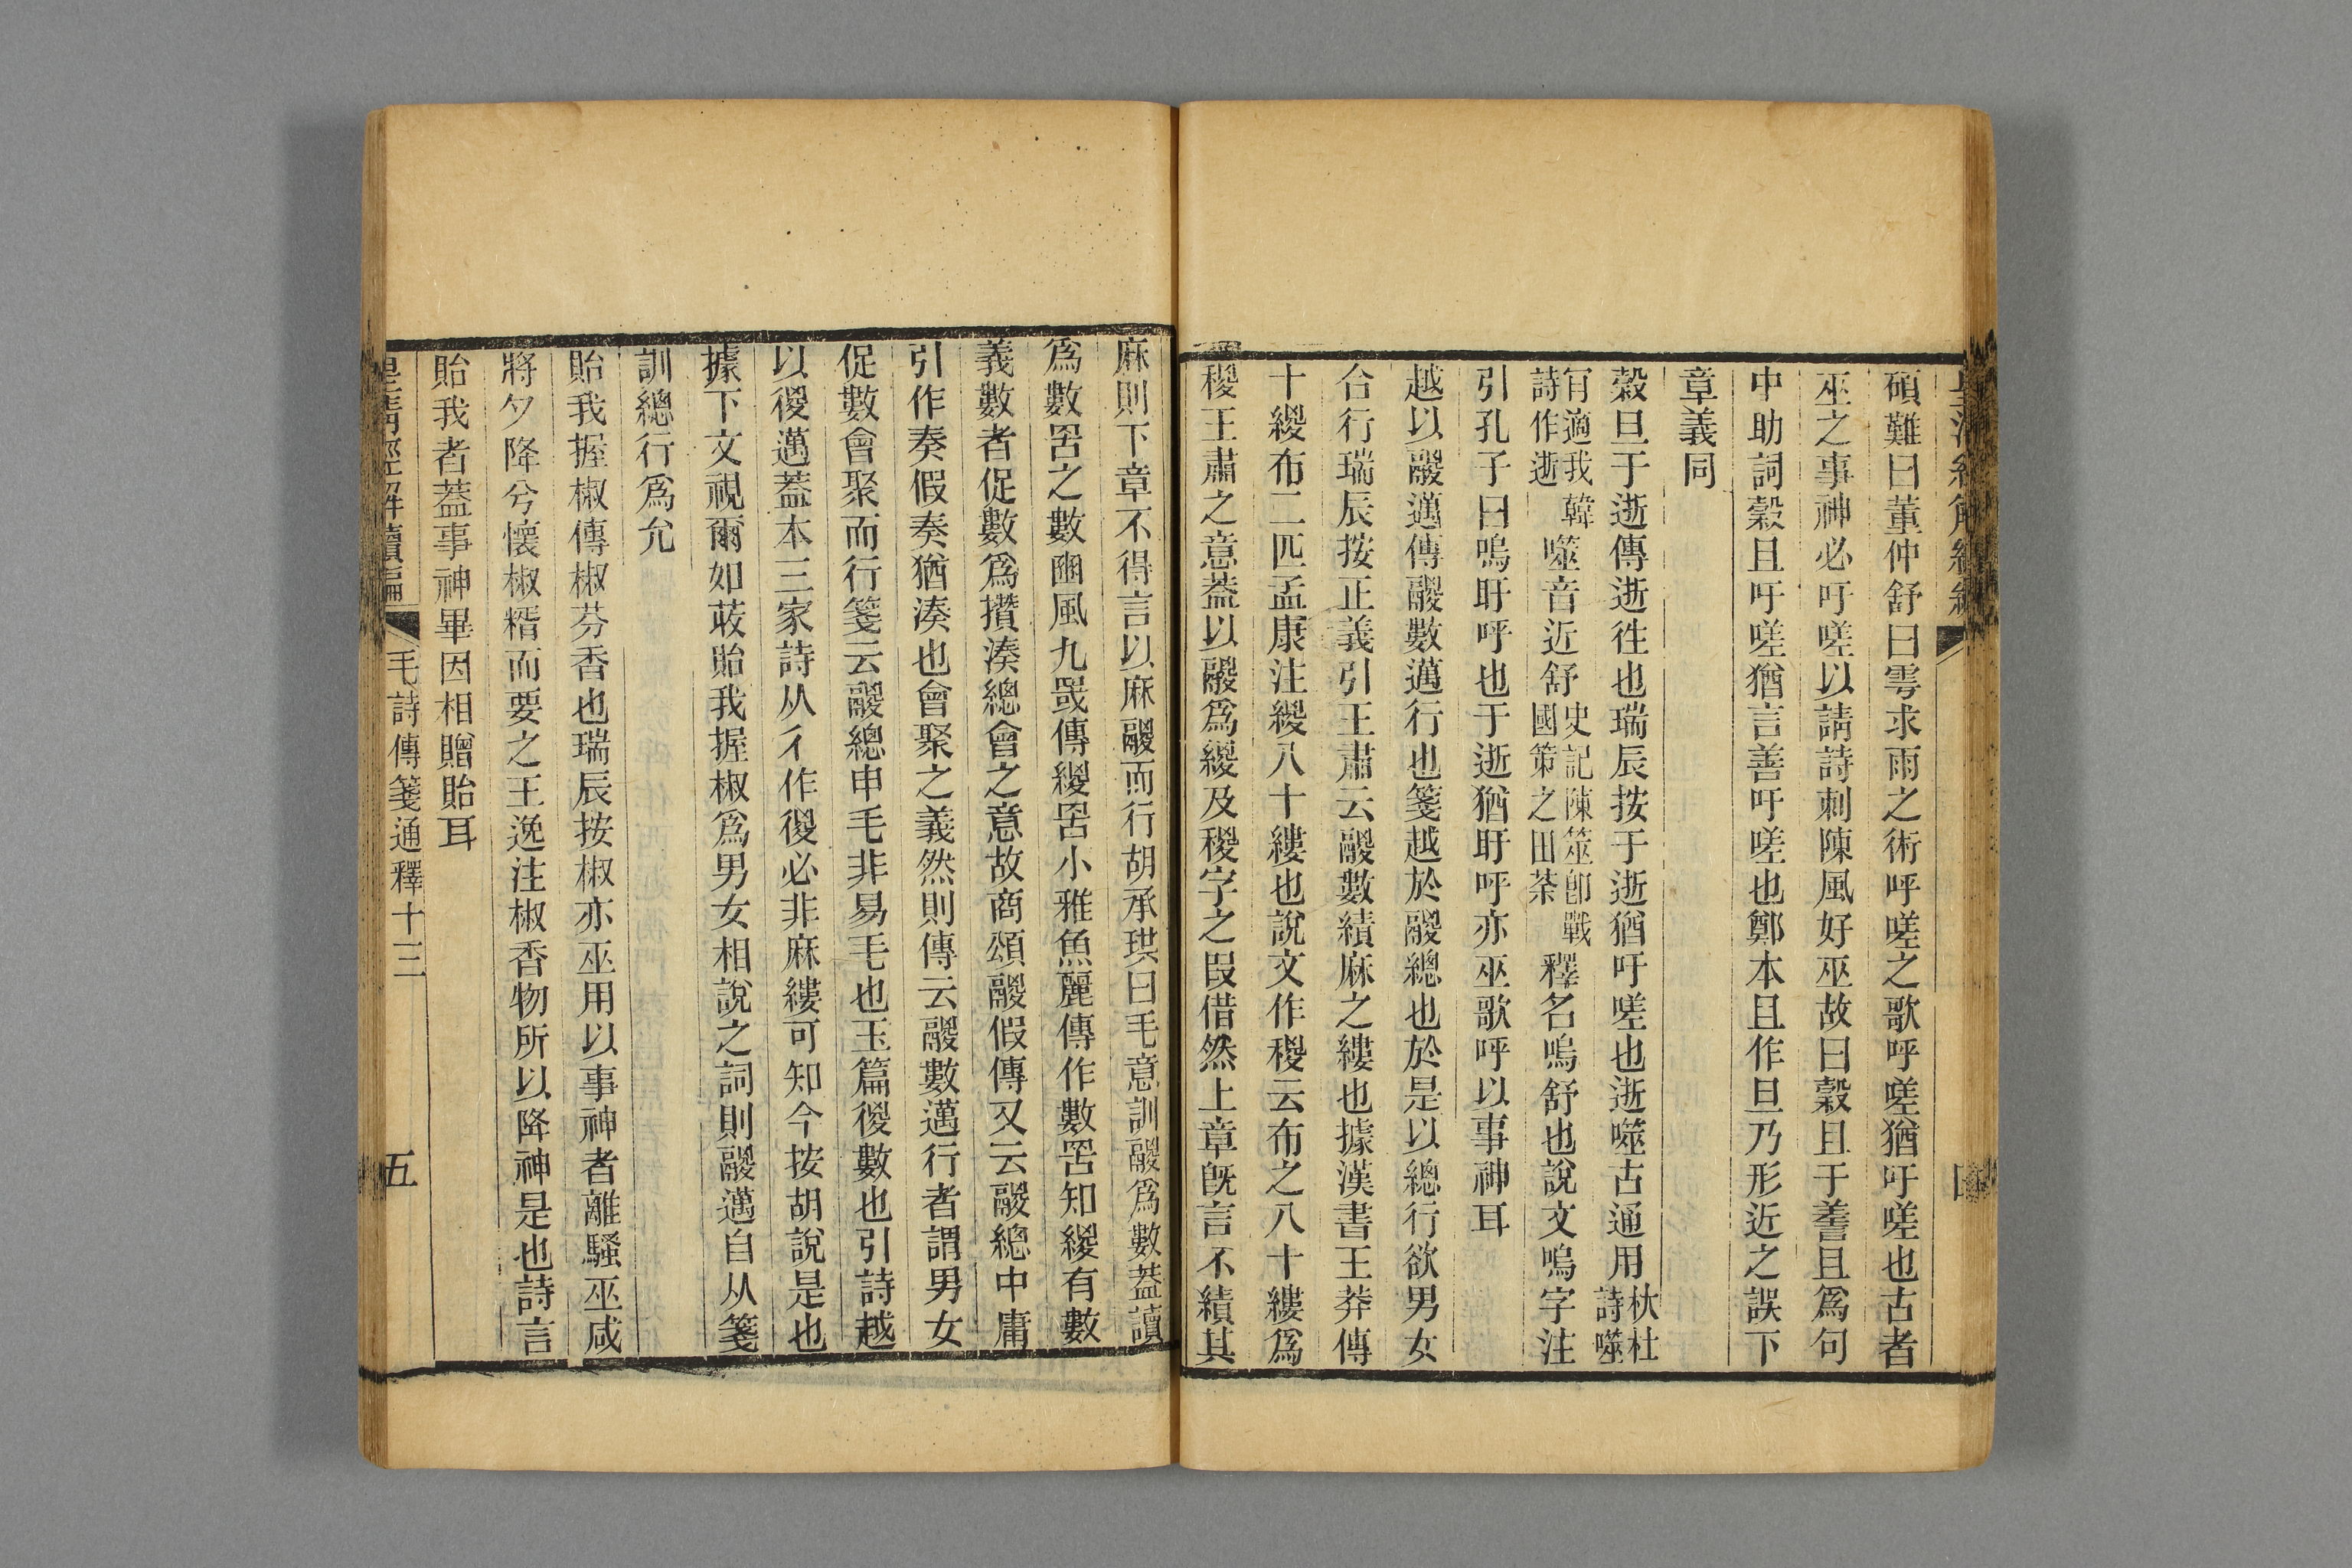 碩難曰董仲舒曰雩求雨之術呼嗟之歌呼嗟猶吁嗟也古者
巫之事神必吁嗟以請詩刺陳風好巫故曰穀且于善且爲句
中助詞穀且吁嗟猶言善吁嗟也鄭本且作旦乃形近之誤下
章義同
穀旦于逝傳逝徃也瑞辰按于逝猶吁嗟也逝噬古通用杕杜詩噬
肎適我韓詩作逝噬音近舒史記陳筮卽戰國策之田荼釋名嗚舒也說文嗚字注
引孔子曰嗚盱呼也于逝猶盱呼亦巫歌呼以事神耳
越以鬷邁傳鬷數邁行也箋越於鬷總也於是以總行欲男女
合行瑞辰按正義引王肅云鬷數績麻之縷也據漢書王莽傳
十緵布二匹孟康注緵八十縷也說文作稯云布之八十縷爲
稯王肅之意蓋以鬷爲緵及稯字之叚借然上章旣言不績其
麻則下章不得言以麻鬷而行胡承珙曰毛意訓鬷爲數蓋讀
爲數罟之數豳風九罭傳緵罟小雅魚麗傳作數罟知緵有數
義數者促數爲攢湊總會之意故商頌鬷假傳又云鬷總中庸
引作奏假奏猶湊也會聚之義然則傳云鬷數邁行者謂男女
促數會聚而行箋云鬷總申毛非易毛也玉篇㚇數也引詩越
以㚇邁蓋本三家詩从彳作㚇必非麻縷可知今按胡說是也
據下文視爾如荍貽我握椒爲男女相說之詞則鬷邁自从箋
訓總行爲允
貽我握椒傳椒芬香也瑞辰按椒亦巫用以事神者離騷巫咸
將夕降兮懷椒糈而要之王逸注椒香物所以降神是也詩言
貽我者蓋事神畢因相贈貽耳
皇清經解續編
毛詩傳箋通釋十三
五